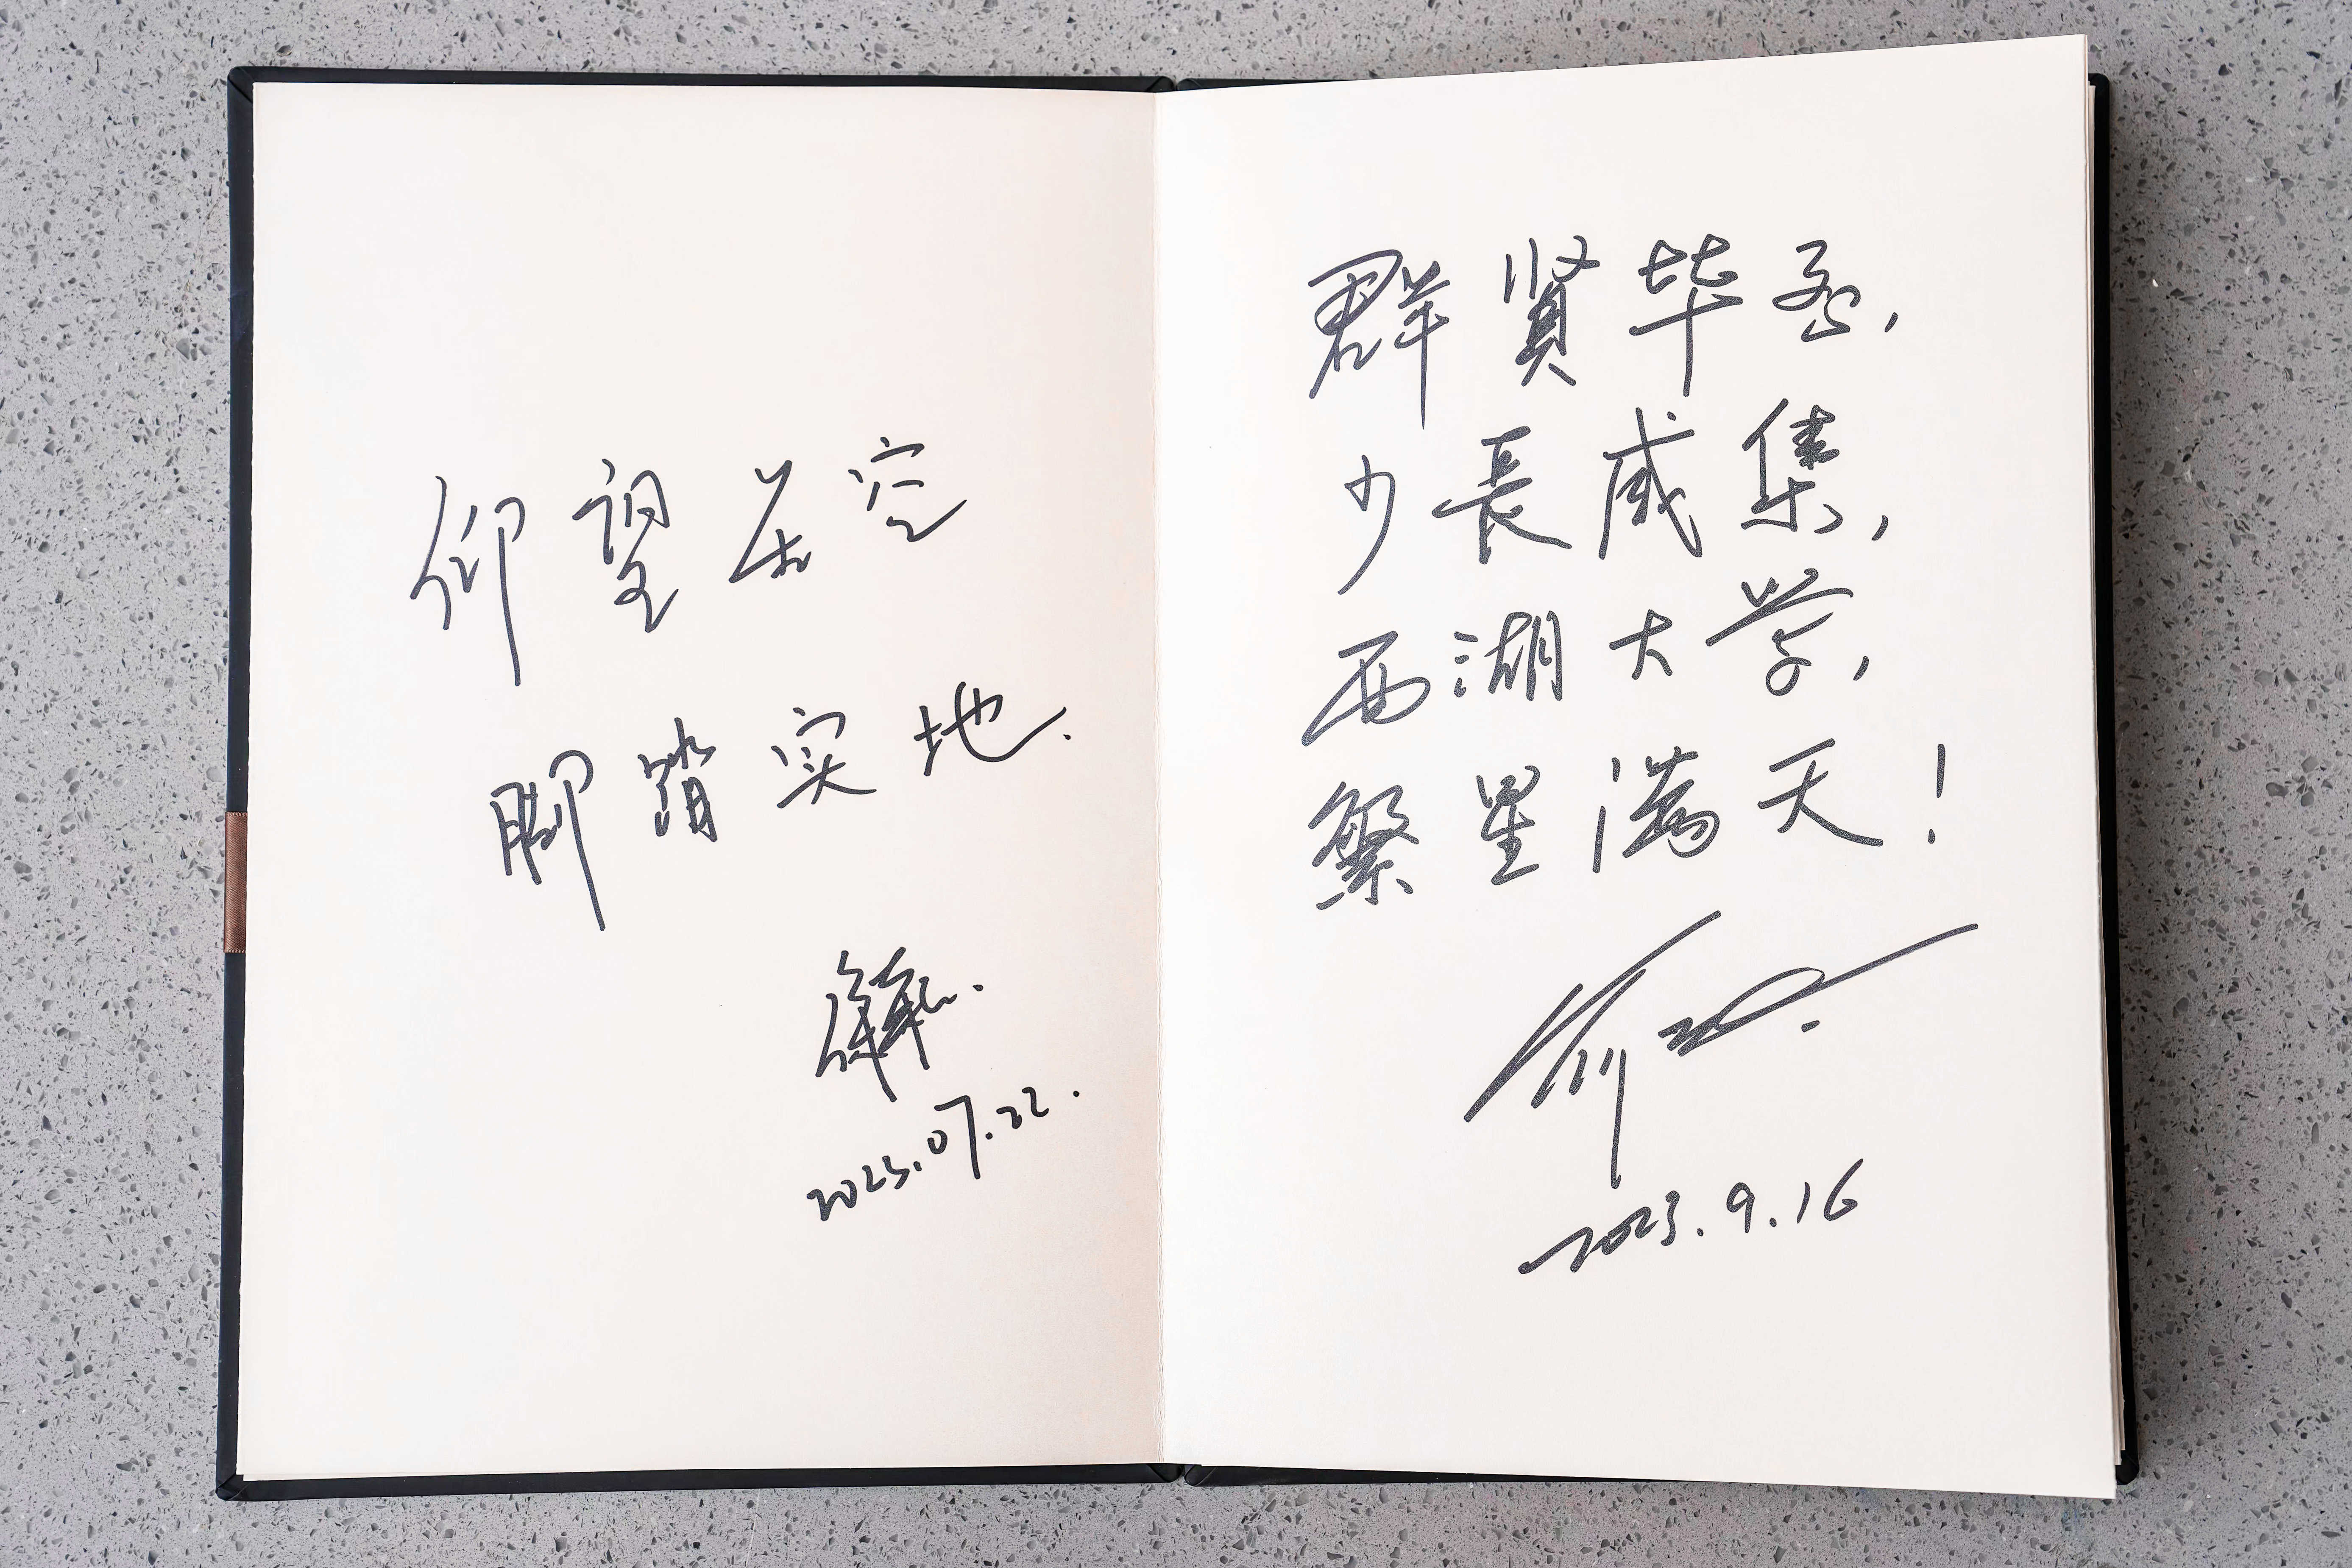 仰望星空
脚踏实地.
2023.07.22.
群贤毕至,
少長咸集,
西湖大学,
繁星满天!
2023.9.16